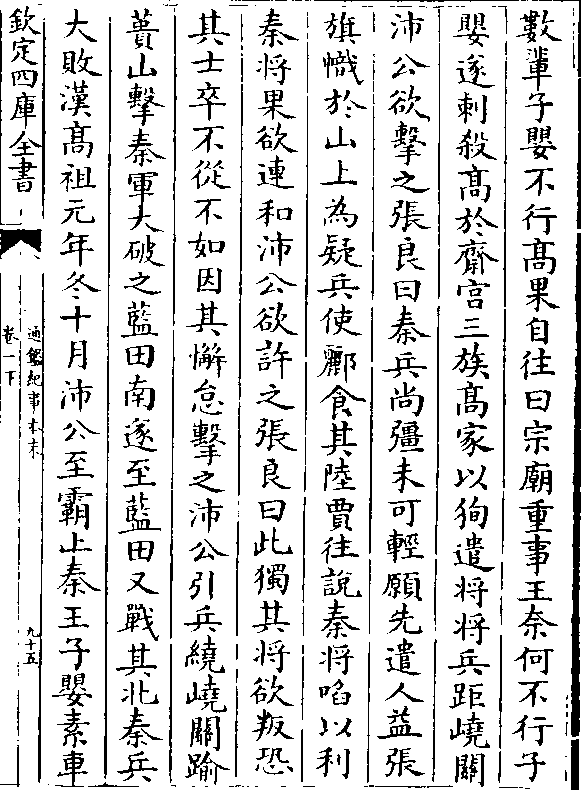 數軰子嬰不行髙果自往曰宗廟重事王奈何不行子
嬰遂刺殺髙於齋宫三族髙家以狥遣将将兵距嶢關
沛公欲擊之張良曰秦兵尚彊未可輕願先遣人益張
旗幟於山上為疑兵使酈食其陸賈往說秦将啗以利
秦将果欲連和沛公欲許之張良曰此獨其将欲叛恐
其士卒不從不如因其懈怠擊之沛公引兵繞嶢關踰
蕢山擊秦軍大破之藍田南遂至藍田又戰其北秦兵
大敗漢髙祖元年冬十月沛公至霸上秦王子嬰素車
欽定四庫全書
通鑑紀事本末
卷一下
九十五